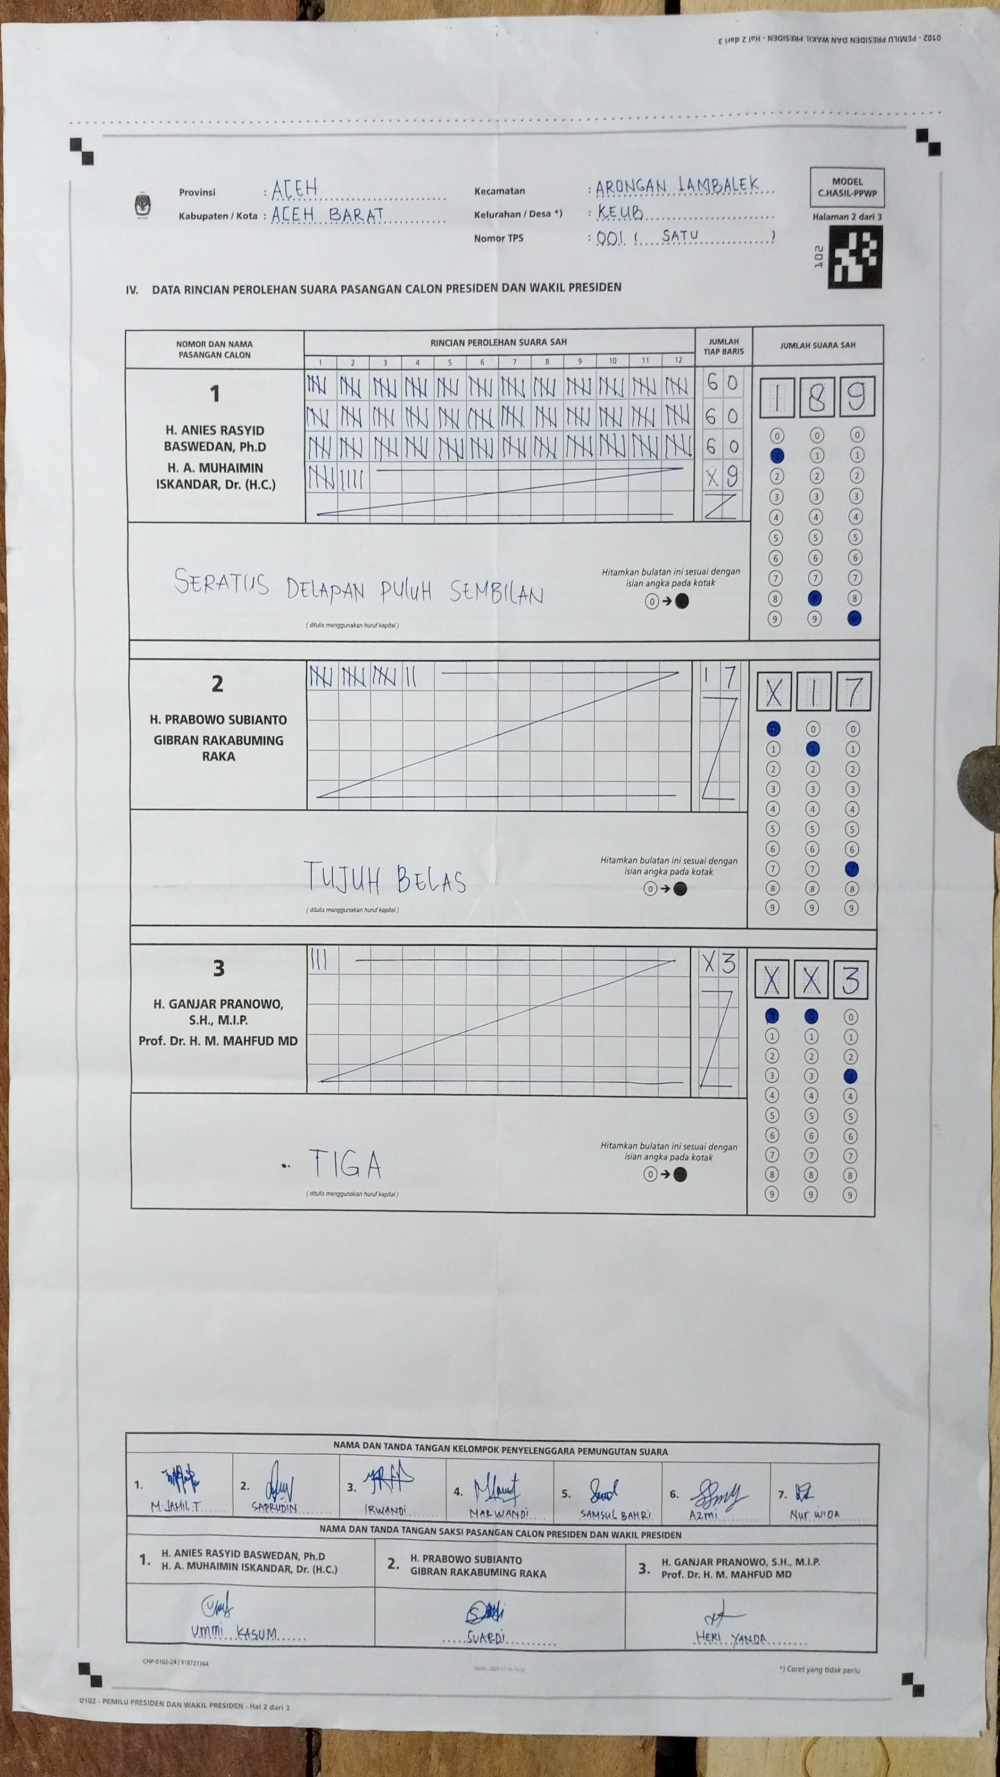 0102 - PEMILU PRESIDEN DAN WAKIL PRESIDEN - Hal 2 dari 3
Provinsi : ACEH
Kabupaten / Kota : ACEH BARAT
Kecamatan : ARONGAN LAMBALEK
Kelurahan / Desa *) : KEUB
Nomor TPS : 001 ( SATU )
MODEL
C.HASIL-PPWP
Halaman 2 dari 3
102
IV. DATA RINCIAN PEROLEHAN SUARA PASANGAN CALON PRESIDEN DAN WAKIL PRESIDEN
NOMOR DAN NAMA
PASANGAN CALON
RINCIAN PEROLEHAN SUARA SAH
1 2 3 4 5 6 7 8 9 10 11 12
JUMLAH
TIAP BARIS
JUMLAH SUARA SAH
1
H. ANIES RASYID
BASWEDAN, Ph.D
H. A. MUHAIMIN
ISKANDAR, Dr. (H.C.)
60
60
60
X9
1 8 9
0 0 0
1 1
2 2 2
3 3 3
4 4 4
5 5 5
6 6 6
7 7 7
8 8
9 9
SERATUS DELAPAN PULUH SEMBILAN
(ditulis menggunakan huruf kapital)
Hitamkan bulatan ini sesuai dengan
isian angka pada kotak
0 →
2
H. PRABOWO SUBIANTO
GIBRAN RAKABUMING
RAKA
17
X 1 7
0 0
1 1
2 2 2
3 3 3
4 4 4
5 5 5
6 6 6
7 7
8 8 8
9 9 9
TUJUH BELAS
(ditulis menggunakan huruf kapital)
Hitamkan bulatan ini sesuai dengan
isian angka pada kotak
0 →
3
H. GANJAR PRANOWO,
S.H., M.I.P.
Prof. Dr. H. M. MAHFUD MD
X3
X X 3
0
1 1 1
2 2 2
3 3
4 4 4
5 5 5
6 6 6
7 7 7
8 8 8
9 9 9
TIGA
(ditulis menggunakan huruf kapital)
Hitamkan bulatan ini sesuai dengan
isian angka pada kotak
0 →
NAMA DAN TANDA TANGAN KELOMPOK PENYELENGGARA PEMUNGUTAN SUARA
1. M. JAMIL.T
2. SAPRUDIN
3. IRWANDI
4. MARWANDI
5. SAMSUL BAHRI
6. AZMI
7. NUR WIDA
NAMA DAN TANDA TANGAN SAKSI PASANGAN CALON PRESIDEN DAN WAKIL PRESIDEN
1. H. ANIES RASYID BASWEDAN, Ph.D
H. A. MUHAIMIN ISKANDAR, Dr. (H.C.)
2. H. PRABOWO SUBIANTO
GIBRAN RAKABUMING RAKA
3. H. GANJAR PRANOWO, S.H., M.I.P.
Prof. Dr. H. M. MAHFUD MD
UMMI KASUM
SUARDI
HERI YANDA
*) Coret yang tidak perlu
0102 - PEMILU PRESIDEN DAN WAKIL PRESIDEN - Hal 2 dari 3